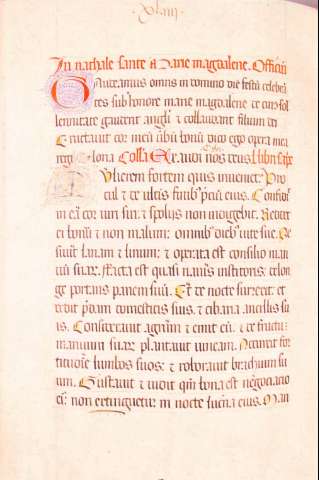 In natiale sante marie magdalene. Officiū
Gaudeamus omnis in domino die festū celebrā
tes sub honore marie magdalene de cuius sol
lennitate gaudent angli & collaudant filium dei
Eructavit cor meū vbū bonū dico ego opera mea
regi Glona Collā Exaudi nos deus libri sapīe
Mulierem fortem quis inveniet Pro
cul & de ultis finibꝰ pciū eius. Confidit
in ea cor viri sui & spoliis non indigebit Reddet
ei bonū & non malum omnibꝰ diebꝰ vite sue
sivit lanam & linum & operata est consilio man
uū suaꝝ. Facta est quasi navis institoris de lon
ge portans panem suū. Et de nocte surrexit et
dedit p̄dam domesticis suis & cibaria ancillis su
is. Consideravit agrum & emit eū & de fructu
manuum suaꝝ plantavit vineam. Accinxit for
titudine lumbos suos & roboravit brachium su
um. Gustavit & vidit qm̄ bona est negociacio
eiꝰ non extinguetur in nocte lucerna eius. Man